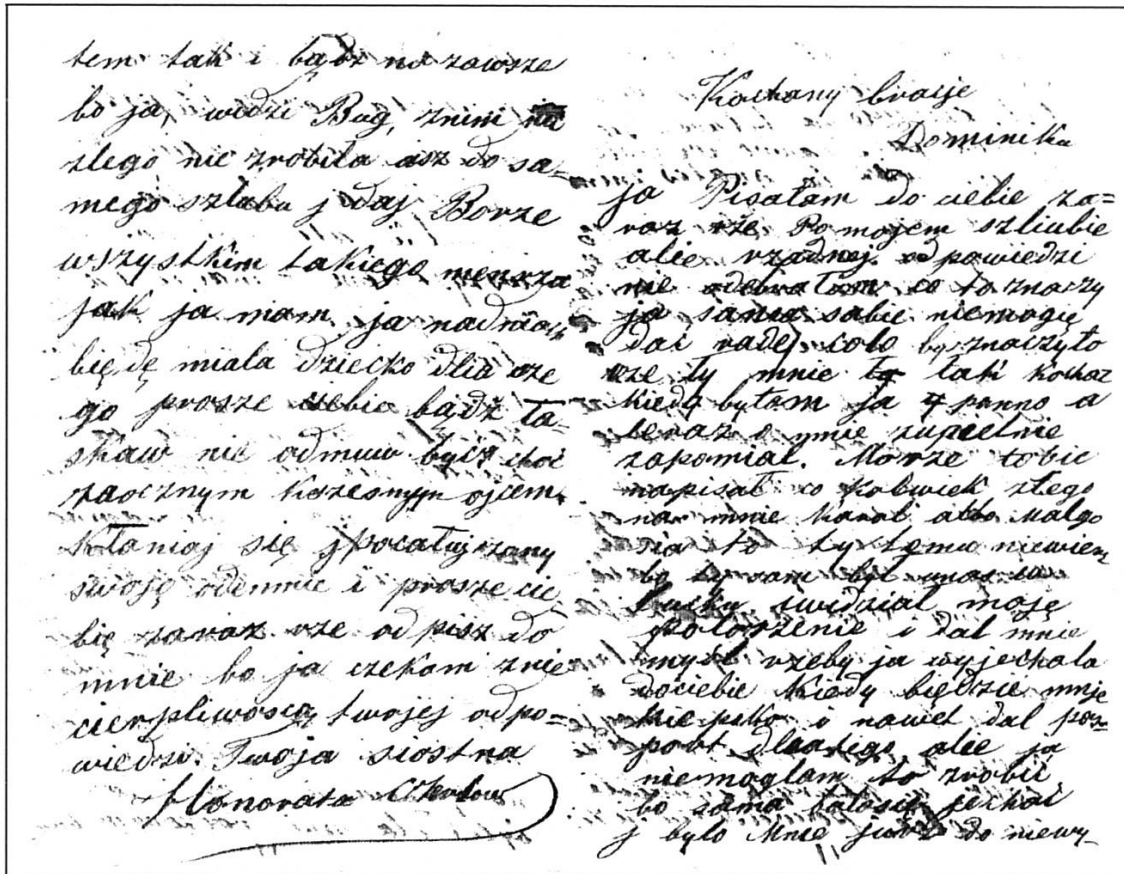 tem tak i bądz na zawsze
bo ja, widzi Bug, znim na
złego nic zrobiła asz do sa-
mego szlabu j daj Borze
wszystkim takiego menrza
jak ja mam ja nadnia
bię dę miala dziecko dlia cze
go prosze ciebie bądź ła-
skaw nie odmuw być choć
zaocznym krzesnym ojcem
Kłaniaj się j pocałuj zany
swoję odemnie i prosze cie
bię zaraz rze odpisz do
mnie bo ja czekam znie
cierpliwoscią twojej odpo=
wiedzi. Twoja siostra
Honorata
Kochany bracje
Dominiku
ja Pisałam do ciebie za=
raz rze Po mojem szliubie
alie rzadnej odpowiedzi
nie odebrałam co to znaczy
ja sama sobie niemogię
dać radę coto by znaczyło
rze ty mnie tak kochaz
kiedy byłam ja panno a
teraz o mnie zupielnie
zapomiał. Morze tobie
napisał co kolwiek złego
na mnie Karol albo Malgo
sia to ty temu niewiem
bo ty sam był unas w
Łucku iwidzial moję
połorzenie i dal mnie
mysl rzeby ja wyjechala
dociebie kiedy będzie mnie
kiepsko i nawet dal pasz=
port dlatego alie ja
niemoglam to zrobić
bo sama bałasię jechać
j było mnie jurz do niewy-